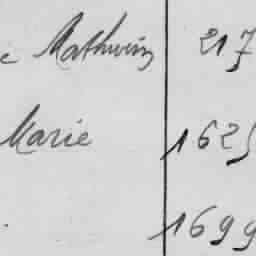 c Mathurin 217
Marie 1625
1699